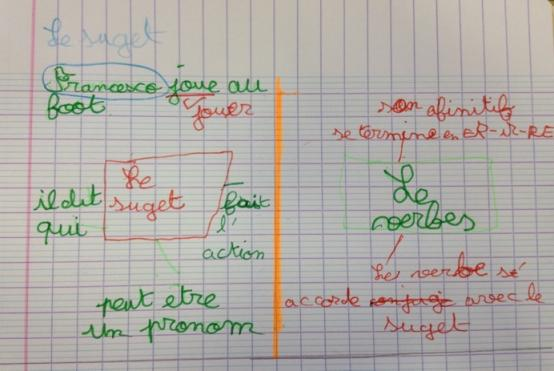 Le suget
Francesco joue au
foot jouer
il dit
qui
Le
suget
fait
l'
action
peut etre
un pronom
son afinitif
se termine en ER-IR-RE
Le
verbes
Le verbe sé
accorde conjuge avec le
suget